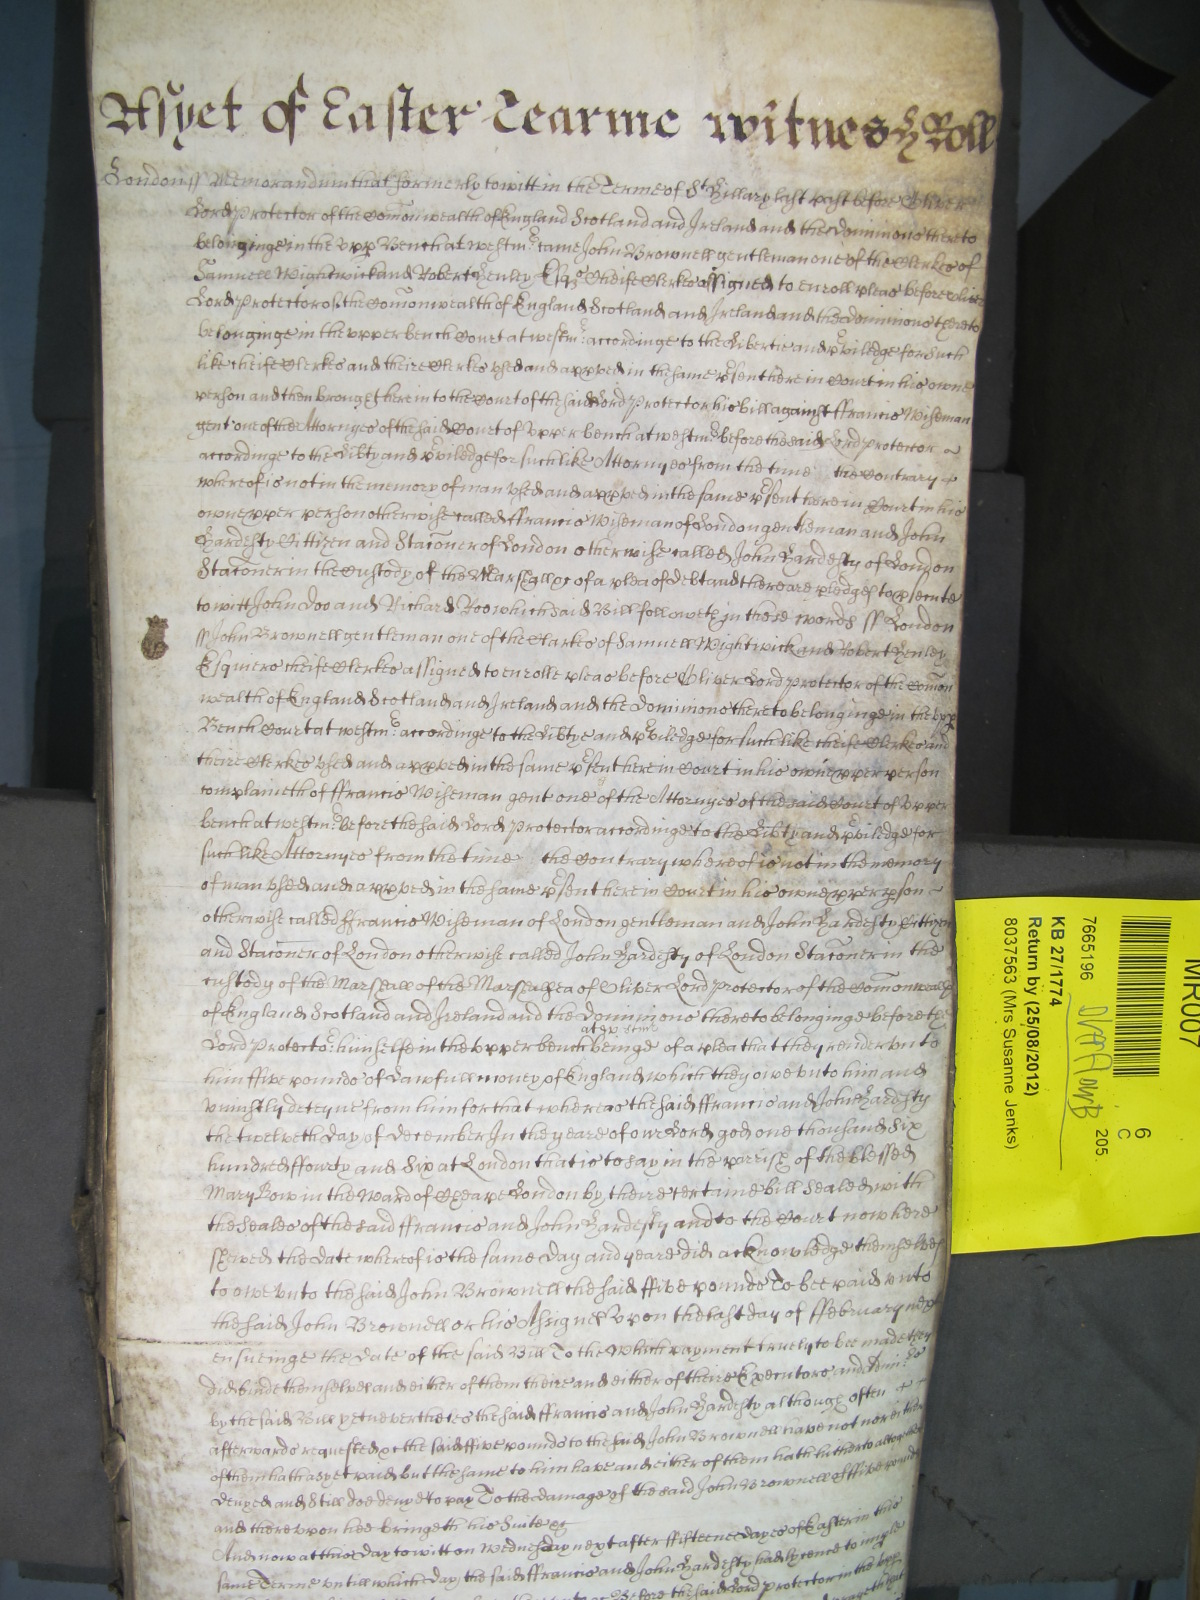 As yet of Easter Tearme witnes Roll
London ss Memorandum that formerly to witt in the Terme of St Hillary last past before Oliver
Lord Protector of the Comonwealth of England Scotland and Ireland and the Dominions thereto
belonginge in the upp Bench at Westmr came John Brownell gentleman one of the Clerkes of
Samuell Wightwick and Robert Henley Esqrs Cheife Clerkes assigned to enroll pleas before Oliver
Lord Protector of the Comonwealth of England Scotland and Ireland and the Dominions thereto
belonginge in the upper bench Court at Westmr accordinge to the Libertie and priviledge for such
like cheife Clerkes and theire Clerkes used and apped in the same psent here in Court in his owne
person and then brought here into the Court of the said Lord Protector his bill against ffrancis Wiseman
gent one of the Attornyes of the said Court of Upper bench at Westmr before the said Lord Protector
accordinge to the Libty and priviledge for such like Attornyes from the time the Contrary
whereof is not in the memory of man used and apped in the same psent here in Court in his
owne pper person otherwise called ffrancis Wiseman of London gentleman and John
Hardesty Cittizen and Staconer of London otherwise called John Hardesty of London
Staconer in the Custody of the Marshall &c of a plea of debt and there are pledges to psecute
to witt John Doo and Richard Roo which said Bill followeth in these words ss London
ss John Brownell gentleman one of the Clarkes of Samuell Wightwick and Robert Henley
Esquiers cheife Clerkes assigned to enrolle pleas before Oliver Lord Protector of the Comon
wealth of England Scotland and Ireland and the Dominions thereto belonginge in the upp
Bench Court at Westmr accordinge to the Libtye and priviledge for such like cheife Clerkes and
theire Clerkes used and apped in the same psent here in Court in his owne pper person
complaineth of ffrancis Wiseman gent one of the Attornyes of the said Court of Upper
bench at Westmr before the said Lord Protector accordinge to the Libty and priviledge for
such like Attornyes from the time the Contrary whereof is not in the memory
of man used and apped in the same psent here in Court in his owne pper pson
otherwise called ffrancis Wiseman of London gentleman and John Hardesty Cittizen
and Staconer of London otherwise called John Hardesty of London Staconer in the
custody of the Marshall of the Marshalsea of Oliver Lord Protector of the Comonwealth
of England Scotland and Ireland and the Dominions thereto belonginge before the
Lord Protector himselfe in the Upper bench at Westmr beinge of a plea that they render unto
him ffive pounds of Lawfull money of England which they owe unto him and
uniustly deteyne from him for that whereas the said ffrancis and John Hardesty
the twelveth day of December In the yeare of our Lord god one thousand six
hundred ffourty and six at London that is to say in the parrish of the blessed
Mary Bow in the Ward of Cheape London by theire certaine bill Sealed with
the Seales of the said ffrancis and John Hardesty and to the Court now here
shewed the date whereof is the same day and yeare did acknowledge themselves
to owe unto the said John Brownell the said ffive pounds To bee paid unto
the said John Brownell or his Assignes Upon the last day of ffebruary next
ensueinge the date of the said Bill To the which payment truely to bee made they
did binde themselves and either of them theire and either of theire Executors and Admrs
by the said Bill yet neverthelesse the said ffrancis and John Hardesty although often
afterwards requested &c the said ffive pounds to the said John Brownell have not nor either
of them hath as yet paid but the same to him have and either of them hath hitherto altogether
denyed and Still doe deny to pay To the damage of the said John Brownell of ffive pounds
and thereupon hee bringeth his Suite &c
And now at this day to witt on Wednesday next after ffifteene dayes of Easter in this
same Terme untill which day the said ffrancis and John Hardesty had lycence to imple
before the said Lord Protector in the upp
MR007
6
C
205
7665196
KB 27/1774
Return by (25/08/2012)
8037563 (Mrs Susanne Jenks)